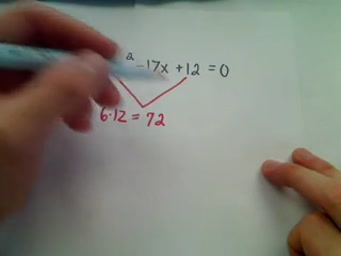 ² -17x + 12 = 0
6·12 = 72